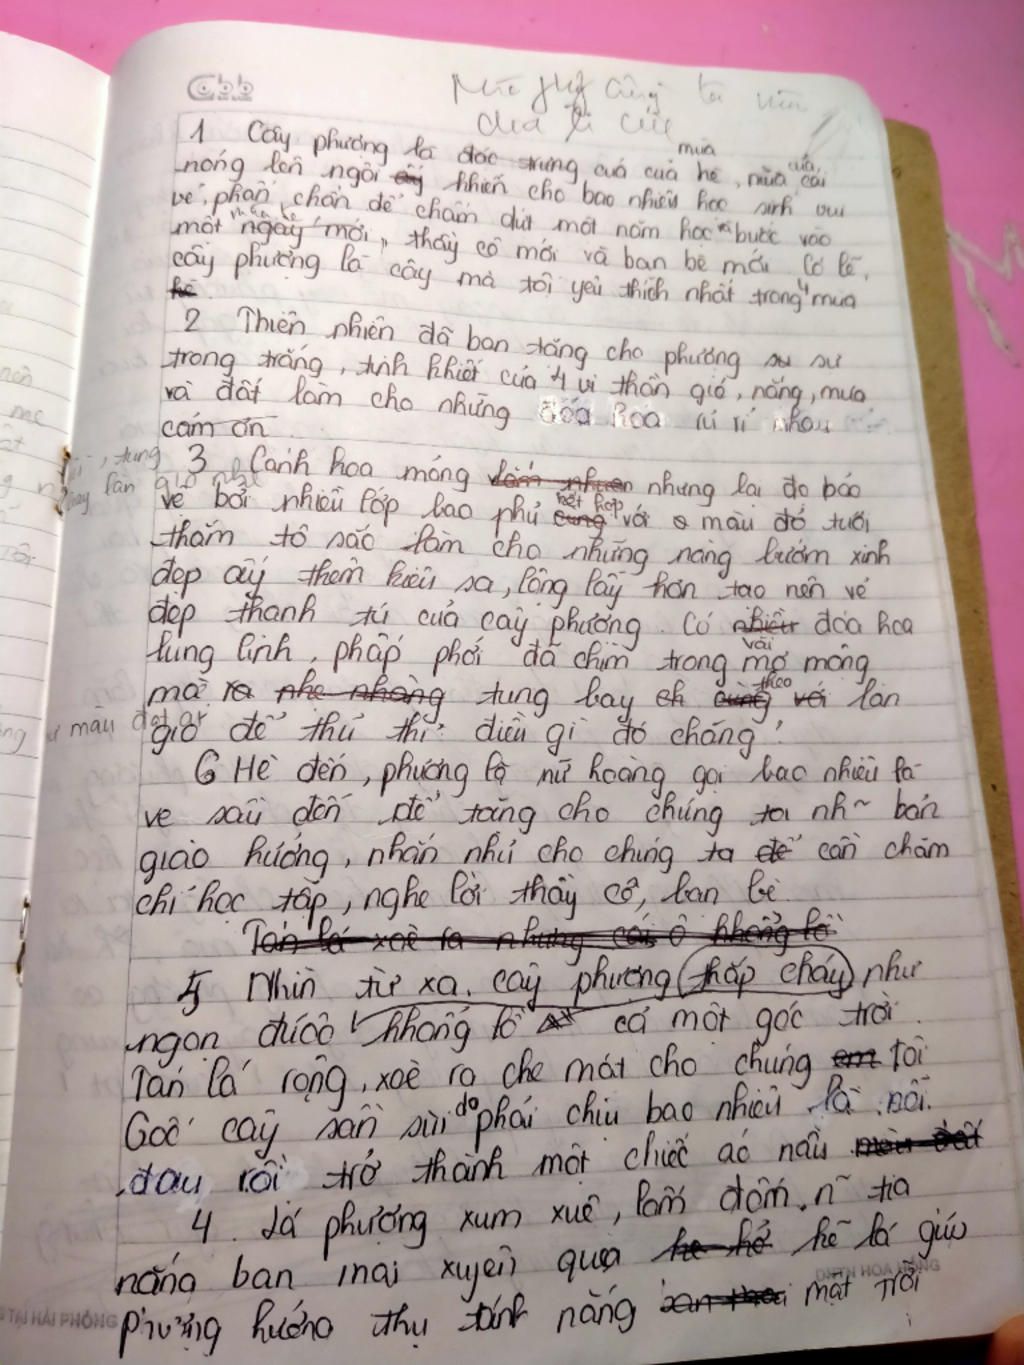 Cbb
1 Cây phượng là đăc trưng cuả cuả hè, mùa cái
mùa
nóng lên ngôi khiến cho bao nhiêu học sinh vui
vẻ, phấn chấn để chấm dứt một năm học bước vào
một ngày mới, thầy cô mới và ban bè mới Có lẽ,
cây phượng là cây mà tôi yêu thích nhất trong mùa
hè
2 Thiên nhiên đã ban tặng cho phượng sự sư
trong trắng, tinh khiết của 4 vi thần gió, nắng, mưa
và đất làm cho những đóa hoa rủ rỉ nhau
cám ơn
3 Cánh hoa mỏng nhưng lai đo bảo
vệ bởi nhiều lớp bao phủ kết hợp với màu đỏ tươi
thắm tô sắc làm cho những nàng bướm xinh
đẹp ấy thêm kiêu sa, lộng lẫy hơn tạo nên vẻ
đẹp thanh tú của cây phượng. Có nhiều đóa hoa
vài
lung linh, phấp phới đã chìm trong mơ mộng
mà ra nhẹ nhàng tung bay theo cùng với làn
gió để thủ thỉ điều gì đó chăng!
6 Hè đến, phượng là nữ hoàng gọi bao nhiêu là
ve sầu đến để tăng cho chúng ta nh~ bản
giao hưởng, nhắn nhủ cho chúng ta để cần chăm
chỉ học tập, nghe lời thầy cô, ban bè
Tán lá xoè ra nhưng cái ô khổng lồ
5 Nhìn từ xa, cây phượng thắp cháy như
ngọn đuốc khổng lồ cả một góc trời.
Tán lá rộng, xoè ra che mát cho chúng em tôi
Gốc cây sần sùi do phải chiu bao nhiêu là nỗi
đau rồi trở thành một chiếc áo nâu màu đất
4. Lá phượng xum xuê, lấm đốm, n~ tia
nắng ban mai xuyên qua kẽ lá giúp
Phượng hưởng thụ ánh nắng ban mai mặt trời
TẠI HẢI PHÒNG